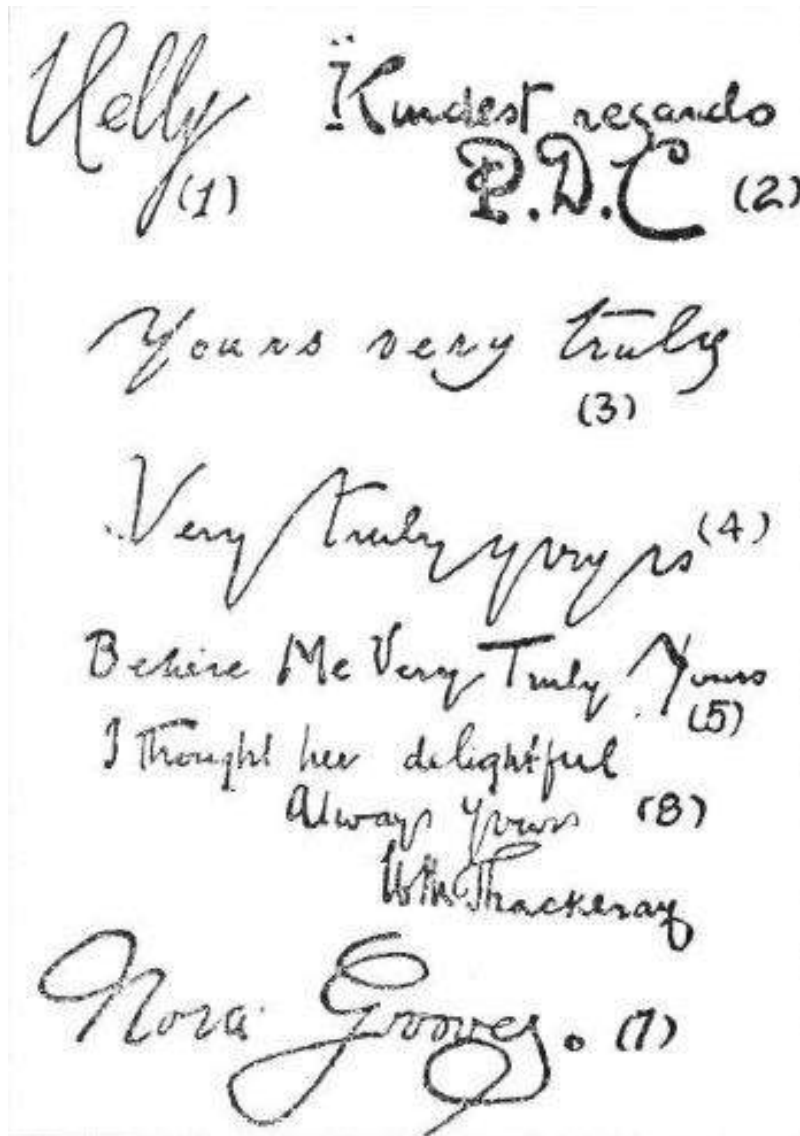 Nelly (1)
Kindest regards
P.D.C (2)
Yours very truly
(3)
Very truly yours (4)
Believe Me Very Truly Yours
(5)
I thought her delightful
Always yours (8)
WM Thackeray
Nora Grooves. (7)